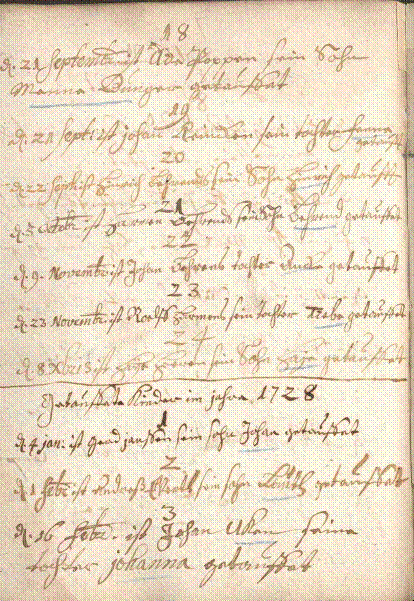 18
d. 21 Septembr. ist Ode Poppen sein Sohn
Menna getauffet
19
d. 21 Septr. ist Johan Reinders sein tochter
getaufft
20
d. 22 Sept. ist Hinrich Behrends sein Sohn Hinrich getaufft
21
d. 5 octobr. ist Harmen Behrends sein Sohn Behrend getauffet
22
d. 9. Novembr. ist Johan Behrens tochter Antke getauffet
23
d. 23 Novembr. ist Roelff Harmens sein tochter Trebe getauffet
24
d. 8 Xbris ist sein Sohn getauffet
Getauffete Kinder im jahre 1728
1
d. 4 jan: ist Gerd janssen sein sohn Johan getauffet
2
d. 1 febr. ist sein sohn getauffet
3
d. 16 febr. ist Johan Uken seine
tochter johanna getauffet